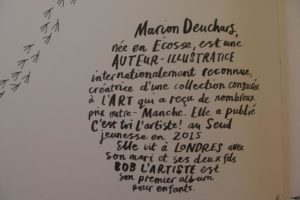 Marion Deuchars,
née en Ecosse, est une
AUTEUR-ILLUSTRATICE
internationalement reconnue,
créatrice d'une collection consacrée
à L'ART qui a reçu de nombreux
prix outre-Manche. Elle a publié
C'est toi L'artiste! au Seuil
jeunesse en 2015
Elle vit à LONDRES avec
son mari et ses deux fils.
BOB L'ARTISTE est
son premier album
pour enfants.